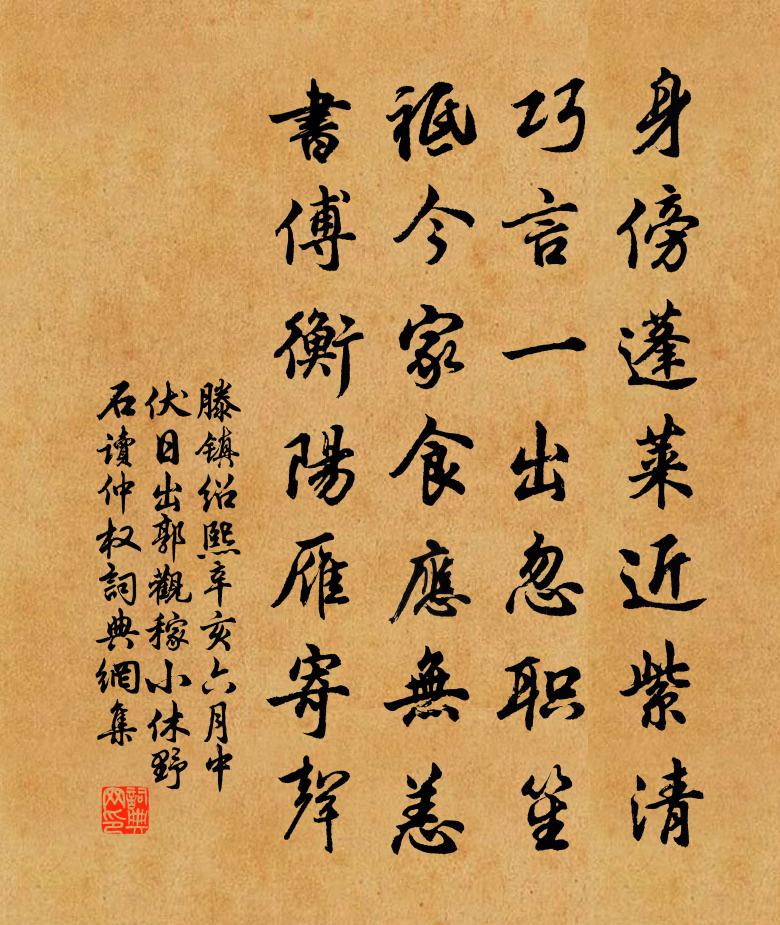 身傍蓬莱近紫清
巧言一出忽职笙
祗今家食應無恙
書傅衡陽雁寄聲
滕镇绍熙辛亥六月中
伏日出郭觀稼小休野
石讀仲权詞典網集
詞典网印